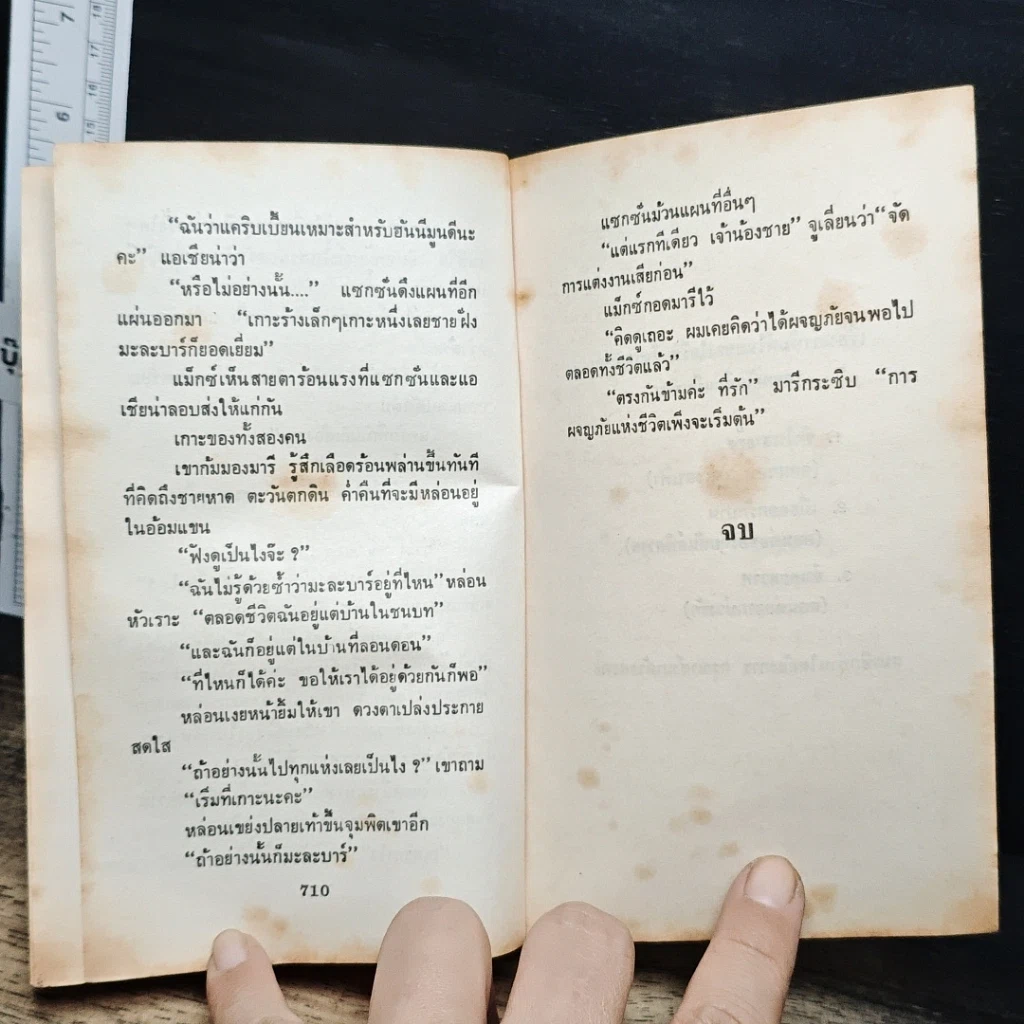 “ฉันว่าแคริบเบี้ยนเหมาะสำหรับฮันนีมูนดีนะ
คะ” แอเชียน่าว่า
“หรือไม่อย่างนั้น....” แซกซันดึงแผนที่อีก
แผ่นออกมา “เกาะร้างเล็กๆเกาะหนึ่งเลยชายฝั่ง
มะละบาร์ก็ยอดเยี่ยม”
แม็กซ์เห็นสายตาร้อนแรงที่แซกซันและแอ
เชียน่าลอบส่งให้แก่กัน
เกาะของทั้งสองคน
เขาก้มมองมารี รู้สึกเลือดร้อนพล่านขึ้นทันที
ที่คิดถึงชายหาด ตะวันตกดิน ค่ำคืนที่จะมีหล่อนอยู่
ในอ้อมแขน
“ฟังดูเป็นไงจ๊ะ ?”
“ฉันไม่รู้ด้วยซ้ำว่ามะละบาร์อยู่ที่ไหน” หล่อน
หัวเราะ “ตลอดชีวิตฉันอยู่แต่บ้านในชนบท”
“และฉันก็อยู่แต่ในบ้านที่ลอนดอน”
“ที่ไหนก็ได้ค่ะ ขอให้เราได้อยู่ด้วยกันก็พอ”
หล่อนเงยหน้ายิ้มให้เขา ดวงตาเปล่งประกาย
สดใส
“ถ้าอย่างนั้นไปทุกแห่งเลยเป็นไง ?” เขาถาม
“เริ่มที่เกาะนะคะ”
หล่อนเขย่งปลายเท้าขึ้นจุมพิตเขาอีก
“ถ้าอย่างนั้นก็มะละบาร์”
710
แซกซันม้วนแผนที่อื่นๆ
“แต่แรกทีเดียว เจ้าน้องชาย” จูเลี่ยนว่า “จัด
การแต่งงานเสียก่อน”
แม็กซ์กอดมารีไว้
“คิดดูเถอะ ผมเคยคิดว่าได้ผจญภัยจนพอไป
ตลอดทั้งชีวิตแล้ว”
“ตรงกันข้ามค่ะ ที่รัก” มารีกระซิบ “การ
ผจญภัยแห่งชีวิตเพิ่งจะเริ่มต้น”
จบ
7
6
18
17
16
15